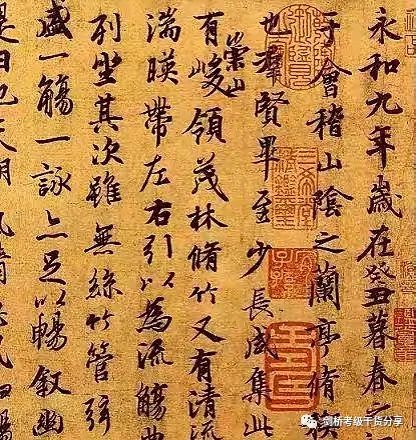 永和九年歲在癸丑暮春之
于會稽山陰之蘭亭脩
也羣賢畢至少長咸集此
有崇山峻領茂林脩竹又有清流
湍暎帶左右引以為流觴曲
列坐其次雖無絲竹管弦
盛一觴一詠亦足以暢敘幽
是日也天朗氣清
剑桥考级干货分享